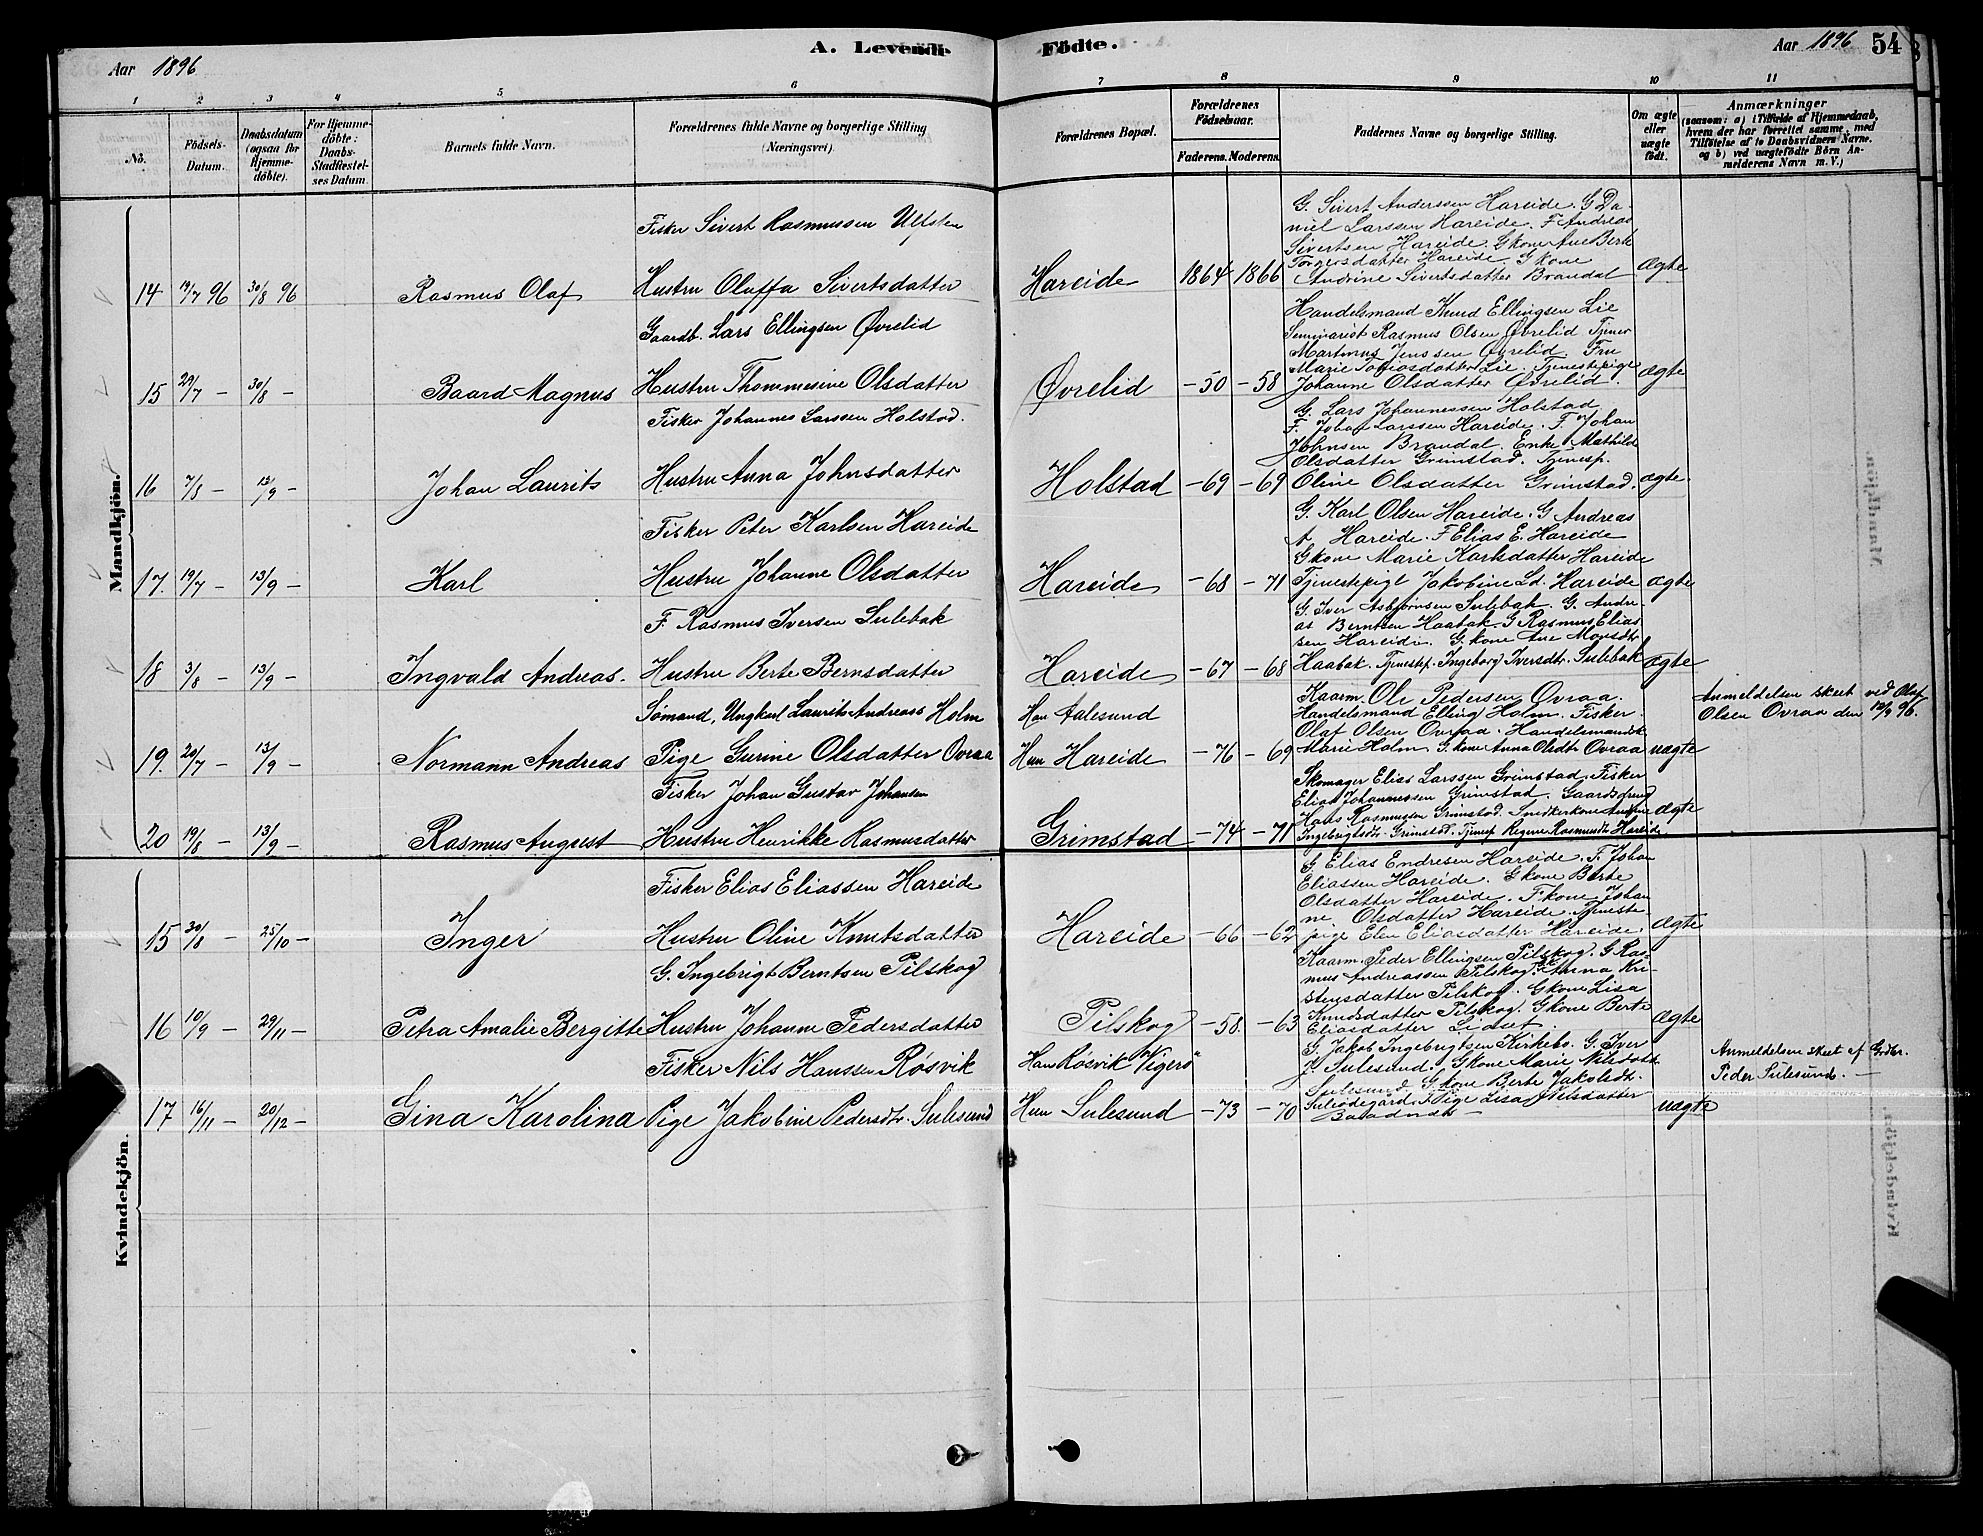 A. Levende Födte.
Aar 1896
Aar 1896 54
1 2 3 4 5 6 7 8 9 10 11
No.
Födsels-Datum.
Daabsdatum (ogsaa for Hjemmedöbte).
For Hjemmedöbte: Daabs-Stadfæstelses Datum.
Barnets fulde Navn.
Forældrenes fulde Navne og borgerlige Stilling (Næringsvei).
Forældrenes Bopæl.
Forældrenes Födselsaar.
Faderens. Moderens.
Faddernes Navne og borgerlige Stilling.
Om ægte eller uægte födt.
Anmærkninger
(saasom: a) i Tilfælde af Hjemmedaab, hvem der har forrettet samme, med Tilföielse af to Daabsvidners Navne, og b) ved uægtefödte Börn Anmelderens Navn m. V.)
Mandkjön.
Fisker Sivert Rasmussen Ulfsten
14 19/7 96 30/8 96 Rasmus Olaf Hustru Oluffa Sivertsdatter
Hareide 1864 1866
G. Sivert Anderssen Hareide. G Da-
niel Larssen Hareide. F Andreas
Sivertsen Hareide. Gkone Ane Berte
Torgersdatter Hareide. Gkone
Andrine Sivertsdatter Brandal
ægte
Gaardb. Lars Ellingsen Øvrelid
15 29/7 - 30/8 - Baard Magnus Hustru Thommesine Olsdatter
Øvrelid -50 -58
Handelsmand Knud Ellingsen Lie
Seminarist Rasmus Olsen Øvrelid Tjener
Martinus Jenssen Øvrelid Fru
Marie Lie. Tjenestepige
Johanne Olsdatter Øvrelid.
ægte
Fisker Johannes Larssen Holstad.
16 7/8 - 13/9 - Johan Laurits Hustru Anna Johnsdatter
Holstad -69 -69
G. Lars Johannessen Holstad
F. Johan Larssen Hareide. F. Johan
Johnsen Brandal. Enke Mathilde
Olsdatter Grimstad. Tjenesp.
Oline Olsdatter Grimstad.
ægte.
Fisker Peter Karlsen Hareide
17. 19/7 - 13/9 - Karl Hustru Johanne Olsdatter
Hareide -68 -71
G. Karl Olsen Hareide. G Andreas
A. Hareide. F Elias E. Hareide
Gkone Marie Karlsdatter Hareide
Tjenestepige Jakobine Ld. Hareide
ægte
F. Rasmus Iversen Sulebak
18 3/8 - 13/9 - Ingvald Andreas. Hustru Berte Bernsdatter
Hareide -67 -68
G. Iver Asbjørnsen Sulebak. G. Andre-
as Berntsen Haabak. G Rasmus Elias
sen Hareide. G.kone Ane Monsdtr
Haabak. Tjenestep. Ingeborg Iversdtr. Sulebak
ægte
Sømand, Ungkarl Laurits Andreas Holm
19. 20/7 - 13/9 - Normann Andreas Pige Gurine Olsdatter Ovraa
Han Aalesund
Hun Hareide -76 -69
Kaarm. Ole Pedersen Ovraa.
Handelsmand Elling Holm. Fisker
Olaf Olsen Overaa. Handelsmandsk
Marie Holm G.kone Anna Olsdtr Ovraa
uægte
Anmeldelsen skeet ved Olaf
Olsen Ovraa den 12/9 96.
Fisker Johan Gustav Johansen
20 19/8 - 13/9 - Rasmus August Hustru Henrikke Rasmusdatter
Grimstad -74 -71
Skomager Elias Larssen Grimstad. Fisker
Elias Johannessen Grimstad. Gaardsdreng
Hans Rasmussen Grimstad. Snedkerkone
Ingebrigtsdtr. Grimstad. Tjenesp Regine Rasmusdtr Hareide.
ægte
Kvindekjön.
Fisker Elias Eliassen Hareide
15 30/8 - 25/10 - Inger Hustru Oline Knutsdatter
Hareide -66 -62
G. Elias Endresen Hareide. F. Johan
Eliassen Hareide. Gkone Berte
Olsdatter Hareide. Fkone Johan
ne Olsdatter Hareide. Tjeneste
pige Elen Eliasdatter Hareide.
ægte
G. Ingebrigt Berntsen Pilskog
16 10/9 - 29/11 - Petra Amalie Bergitte Hustru Johanne Pedersdatter
Pilskog -58. -63
Kaarm. Peder Ellingsen Pilskog. G Ras-
mus Andreassen Pilskog. Anna Kri-
stensdatter Pilskog. Gkone Lisa
Knudsdatter Pilskog. Gkone Berte
Eliasdatter
ægte
Fisker Nils Hanssen Røsvik
17 16/11 - 20/12 - Gina Karolina Pige Jakobine Pedersdtr. Sulesund
Han Røsvik Vigerø
Hun Sulesund -73 -70
G. Jakob Ingebrigtsen Kirkebø. G. Iver
J. Sulesund. Gkone Marie Nilsdatt.
Sulesund. Gkone Berte Jakobsdtr.
Pige Lisa Nilsdatter
uægte
Anmeldelsen skeet af Grdbr.
Peder Sulesund. —